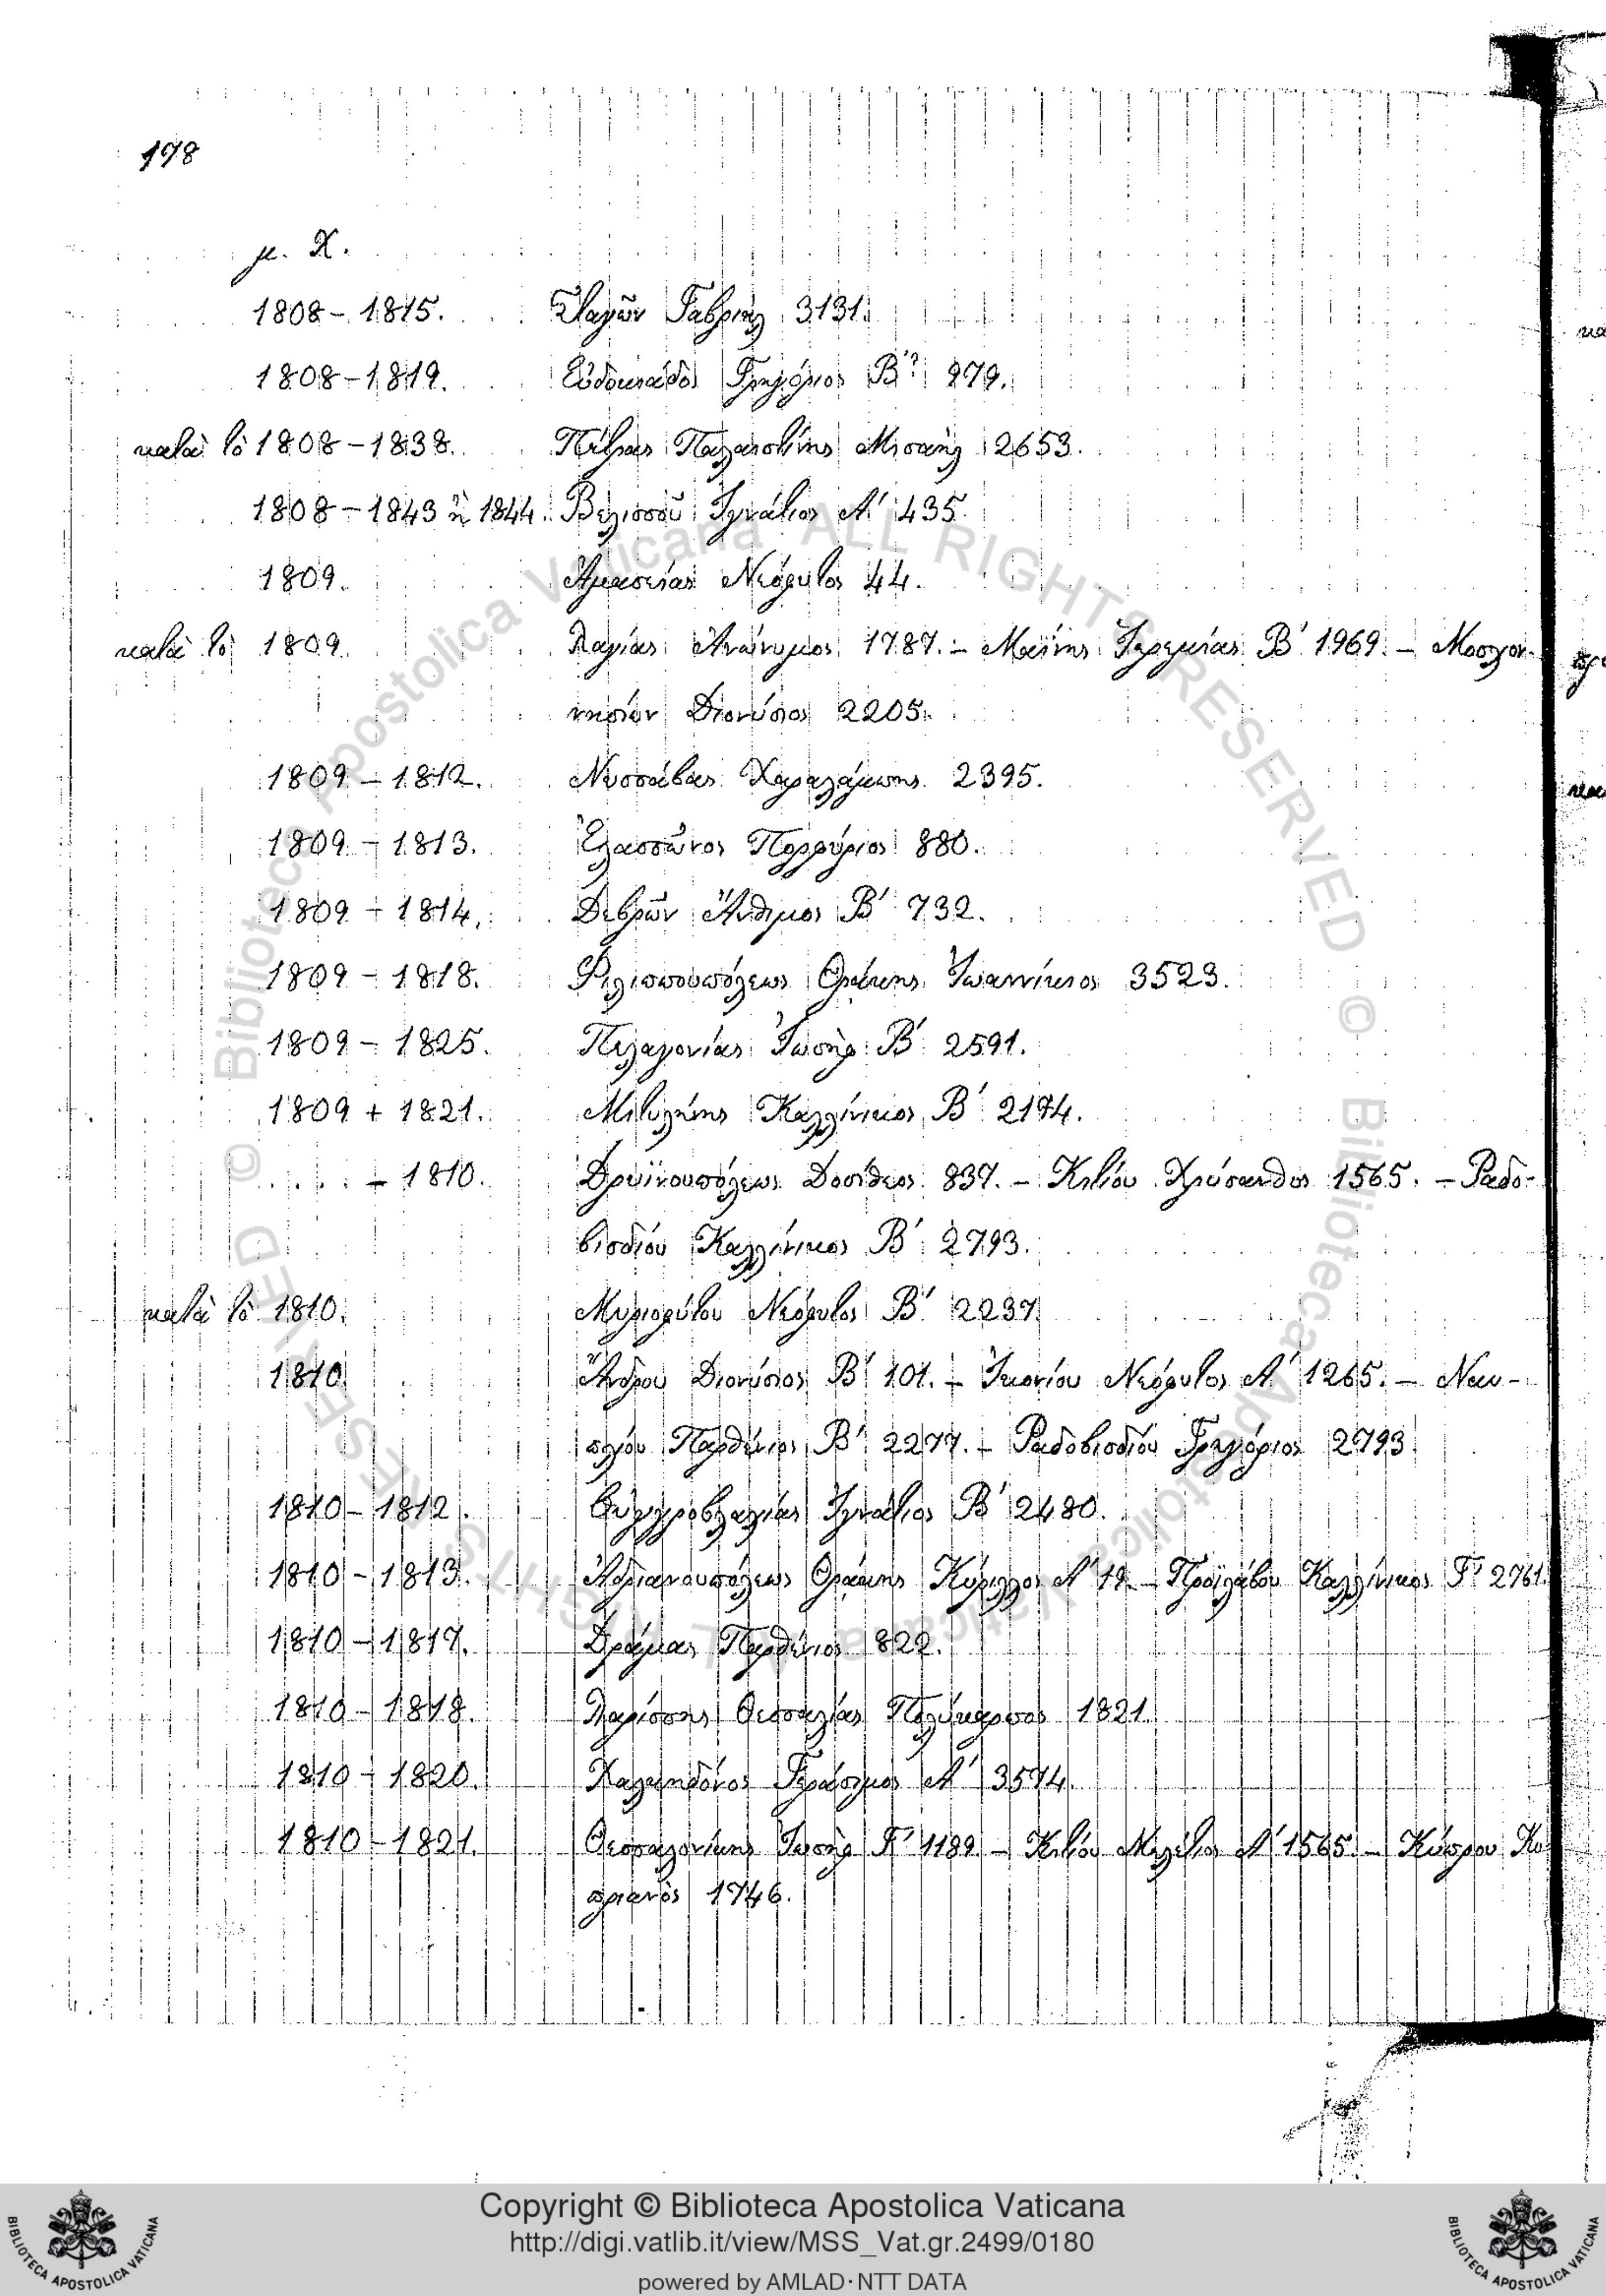 178
μ. Χ.
1808 – 1815. Σταγῶν Γαβριὴλ 3131.
1808 – 1819. Εὐδοκιάδος Γρηγόριος Β'? 979.
κατὰ τὸ 1808 – 1838. Πέτρας Παλαιστίνης Μισαὴλ 2653.
1808 – 1843 ἢ 1844. Βελισσοῦ Ἰγνάτιος Α' 435.
1809. Ἀμασείας Νεόφυτος 44.
κατὰ τὸ 1809. Λαγίας Ἀνώνυμος 1787. – Μαΐνης Ἱερεμίας Β' 1969. – Μοσχον-
νησίων Διονύσιος 2205.
1809 – 1812. Νυσσάβας Χαραλάμπης 2395.
1809 – 1813. Ἐλασσῶνος Πορφύριος 880.
1809 – 1814. Δεβρῶν Ἄνθιμος Β' 732.
1809 – 1818. Φιλιππουπόλεως Θράκης Ἰωαννίκιος 3523.
1809 – 1825. Πελαγονίας Ἰωσὴφ Β' 2591.
1809 + 1821. Μιτυλήνης Καλλίνικος Β' 2174.
..... – 1810. Δρυϊνουπόλεως Δοσίθεος 837. – Κιτίου Χρύσανθος 1565. – Ραδο-
βισδίου Καλλίνικος Β' 2793.
κατὰ τὸ 1810. Μυριοφύτου Νεόφυτος Β' 2237.
1810. Ἄνδρου Διονύσιος Β' 101. – Ἰκονίου Νεόφυτος Α' 1265. – Ναυ-
πλίου Παρθένιος Β' 2277. – Ραδοβισδίου Γρηγόριος 2793.
1810 – 1812. Οὑγγροβλαχίας Ἰγνάτιος Β' 2480.
1810 – 1813. Ἀδριανουπόλεως Θράκης Κύριλλος Α' 19. – Προϊλάβου Καλλίνικος Γ' 2761.
1810 – 1817. Δράμας Παρθένιος 822.
1810 – 1818. Λαρίσσης Θεσσαλίας Πολύκαρπος 1821.
1810 – 1820. Χαλκηδόνος Γεράσιμος Α' 3574.
1810 – 1821. Θεσσαλονίκης Ἰωσὴφ Γ' 1189. – Κιτίου Μελέτιος Α' 1565. – Κύπρου Κυ
πριανὸς 1746.
© Biblioteca Apostolica Vaticana ALL RIGHTS RESERVED © Biblioteca Apostolica Vaticana ALL RIGHTS RESERVED
Copyright © Biblioteca Apostolica Vaticana
http://digi.vatlib.it/view/MSS_Vat.gr.2499/0180
powered by AMLAD·NTT DATA
BIBLIOTECA APOSTOLICA VATICANA
BIBLIOTECA APOSTOLICA VATICANA